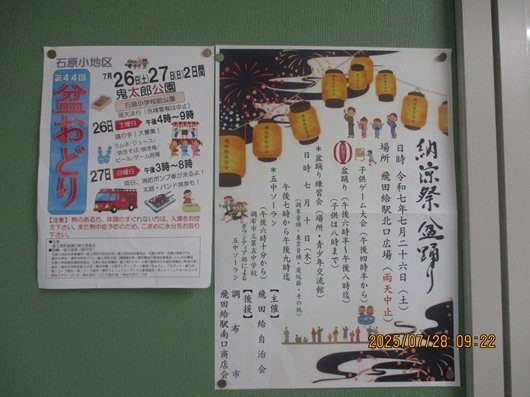 石原小地区
第44回
盆おどり
7月26日(土)27日(日)2日間
鬼太郎公園
石原小学校前公園
雨天決行(各種警報は中止)
26日 土曜日 午後4時~9時
踊り手!大募集!
ラムネ/ジュース/
焼きそば/焼き鳥/
ビール/ゲーム各種
27日 日曜日 午後3時~8時
両日、消防ポンプ車が来るよ!
太鼓・バンド演奏も!
【注意】熱のある方、体調のすぐれない方は、入場をお控え下さい。また熱中症予防のため、こまめに水分をお取り下さい。
納涼祭 盆踊り
日時 令和七年七月二十六日(土)
場所 飛田給駅北口広場(雨天中止)
子供ゲーム大会(午後四時半から)
盆踊り(午後六時半~午後八時迄)
(子供は八時まで)
*盆踊り練習会(場所・青少年交流館)
日時 七月二十日(木)
午後七時から午後九時迄
*五中ソーラン
(午後六時十分から)
調布市立第五中学校
ボランティア部による
五中ソーラン
【主催】
飛田給自治会
【後援】
調布市
飛田給駅南口商店会
2025/07/28 09:22